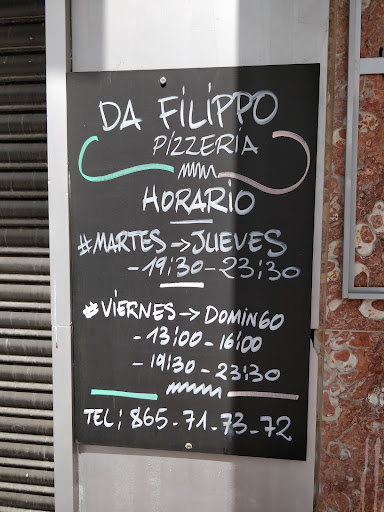 DA FILIPPO
PIZZERIA
HORARIO
#MARTES→JUEVES
-19:30-23:30
#VIERNES→DOMINGO
-13:00-16:00
-19:30-23:30
TEL: 865-71-73-72